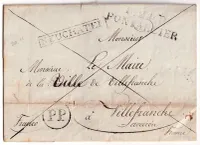 NEUCHATEL
PONTARLIER
Monsieur
Monsieur Le Maire
de la Ville de Villefranche
à Villefranche
Franco P.P. Aveiron
France